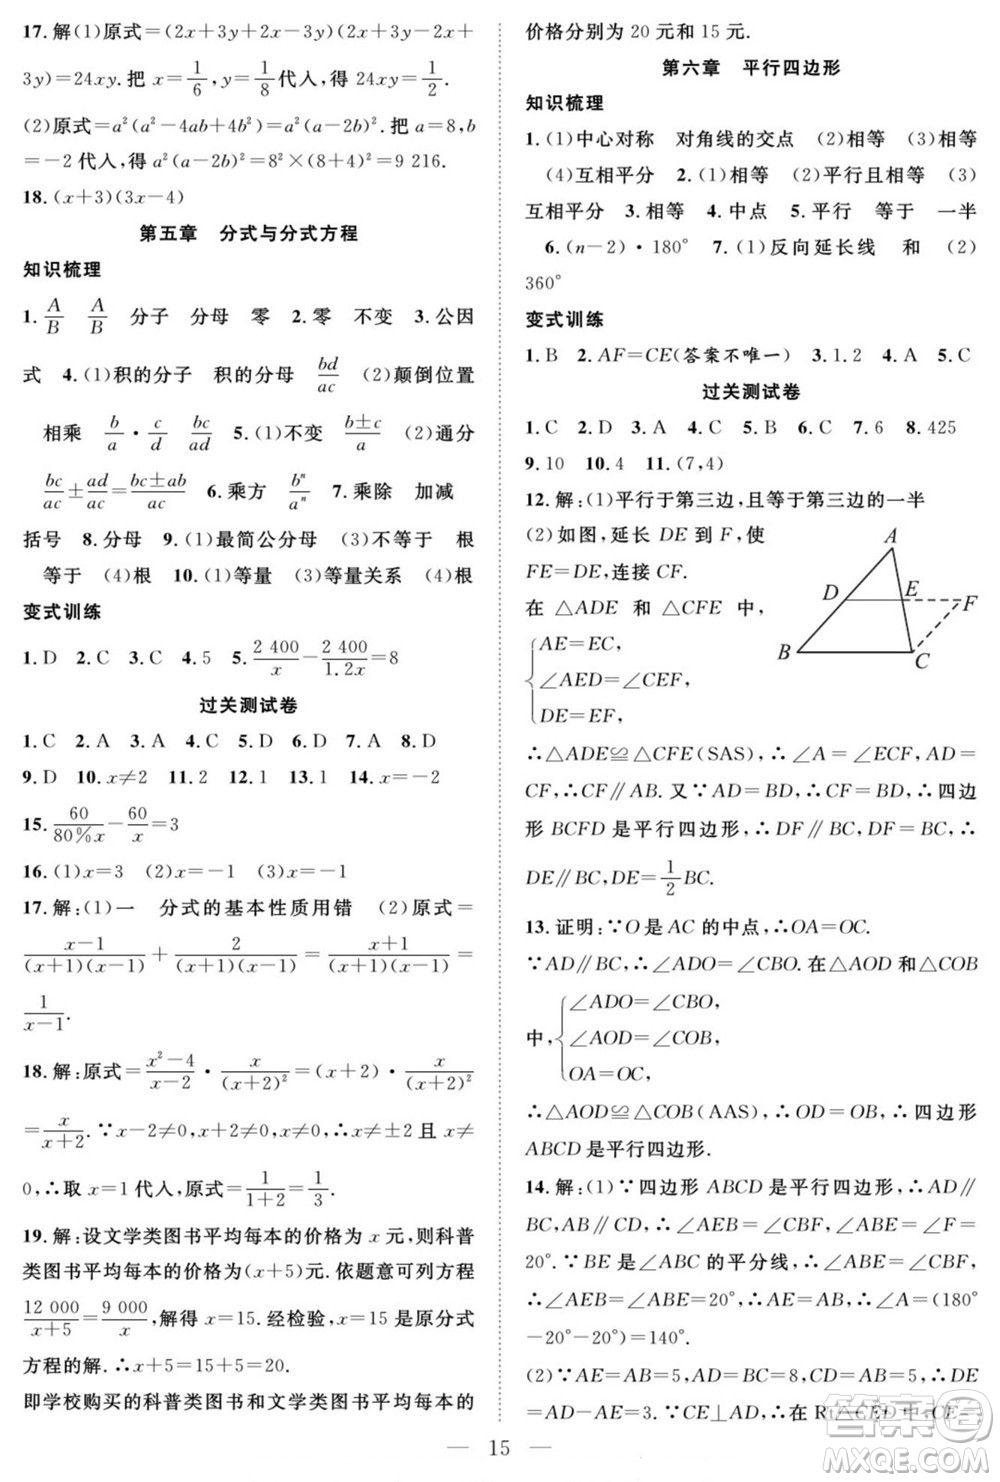 17.解(1)原式=(2x+3y+2x-3y)(2x+3y-2x+
3y)=24xy.把 x=1/6,y=1/8代入,得 24xy=1/2.
(2)原式=a²(a²-4ab+4b²)=a²(a-2b)².把 a=8,b
=-2代入,得 a²(a-2b)²=8²×(8+4)²=9 216.
18.(x+3)(3x-4)
第五章 分式与分式方程
知识梳理
1.A/B A/B 分子 分母 零 2.零 不变 3.公因
式 4.(1)积的分子 积的分母 bd/ac (2)颠倒位置
相乘 b/a·c/d bc/ad 5.(1)不变 (b±c)/a (2)通分
bc/ac±ad/ac=(bc±ab)/ac 6.乘方 bⁿ/aⁿ 7.乘除 加减
括号 8.分母 9.(1)最简公分母 (3)不等于 根
等于 (4)根 10.(1)等量 (3)等量关系 (4)根
变式训练
1.D 2.C 3.C 4.5 5.2 400/x-2 400/1.2x=8
过关测试卷
1.C 2.A 3.A 4.C 5.D 6.D 7.A 8.D
9.D 10.x≠2 11.2 12.1 13.1 14.x=-2
15.60/80%x-60/x=3
16.(1)x=3 (2)x=-1 (3)x=-1
17.解:(1)一 分式的基本性质用错 (2)原式=
(x-1)/(x+1)(x-1)+2/(x+1)(x-1)=(x+1)/(x+1)(x-1)=
1/(x-1).
18.解:原式=(x²-4)/(x-2)·x/(x+2)²=(x+2)·x/(x+2)²
=x/(x+2).∵x-2≠0,x+2≠0,∴x≠±2 且 x≠
0,∴取 x=1代人,原式=1/(1+2)=1/3.
19.解:设文学类图书平均每本的价格为 x 元,则科普
类图书平均每本的价格为(x+5)元.依题意可列方程
12 000/(x+5)=9 000/x,解得 x=15.经检验,x=15 是原分式
方程的解.∴x+5=15+5=20.
即学校购买的科普类图书和文学类图书平均每本的
价格分别为 20 元和 15 元.
第六章 平行四边形
知识梳理
1.(1)中心对称 对角线的交点 (2)相等 (3)相等
(4)互相平分 2.(1)相等 (2)平行且相等 (3)
互相平分 3.无数 4.中点 5.平行 等于 一半
6.(n-2)·180° 7.(1)反向延长线 和 (2)
360°
变式训练
1.B 2.AF=CE(答案不唯一) 3.1.2 4.A 5.C
过关测试卷
1.C 2.D 3.A 4.C 5.D 6.C 7.6 8.425
9.10 10.4 11.(7,4)
12.解:(1)平行于第三边,且等于第三边的一半
(2)如图,延长 DE 到 F,使
FE=DE,连接 CF.
在 △ADE 和 △CFE 中,
AE=EC,
∠AED=∠CEF,
DE=EF,
A
D
E
F
B
C
∴△ADE≌△CFE(SAS),∴∠A=∠ECF,AD=
CF,∴CF∥AB.又∵AD=BD,∴CF=BD,∴四边
形 BCFD 是平行四边形,∴DF∥BC,DF=BC,∴
DE∥BC,DE=1/2BC.
13.证明:∵O是 AC 的中点,∴OA=OC.
∵AD∥BC,∴∠ADO=∠CBO.在△AOD 和△COB
中,
∠ADO=∠CBO,
∠AOD=∠COB,
OA=OC,
∴△AOD≌△COB(AAS),∴OD=OB,∴四边形
ABCD是平行四边形.
14.解:(1)∵四边形 ABCD 是平行四边形,∴AD∥
BC,AB∥CD,∴∠ABC=∠DCF,∠AEB=∠CBF=
20°.∵BE 是∠ABC 的平分线,∴∠ABE=∠CBF,
∴∠AEB=∠ABE=20°,∴∠A=(180°
-20°-20°)=140°.
(2)∵AE=AB=5,AD=BC=8,CD=AB=5,∴
DE=AD-AE=3.∵CE⊥AD,∴在 Rt△CED 中,CE=
15
答案圈
MXQE.COM